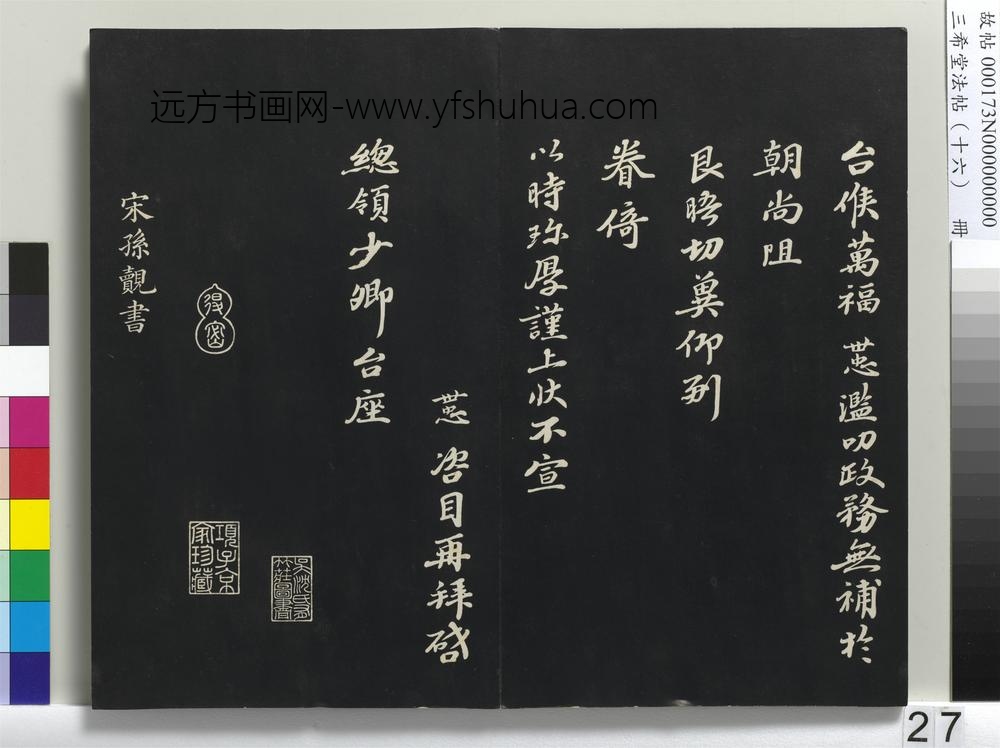 台候萬福 懃濫叨政務無補於
朝尚阻
良晤切冀仰列
眷倚
以時珎厚謹上狀不宣
咨目再拜啓
總領少卿台座
宋孫覿書
項子京
家珍藏
远方书画网-www.yfshuhua.com
故帖 000173N000000000
三希堂法帖(十六) 冊
27